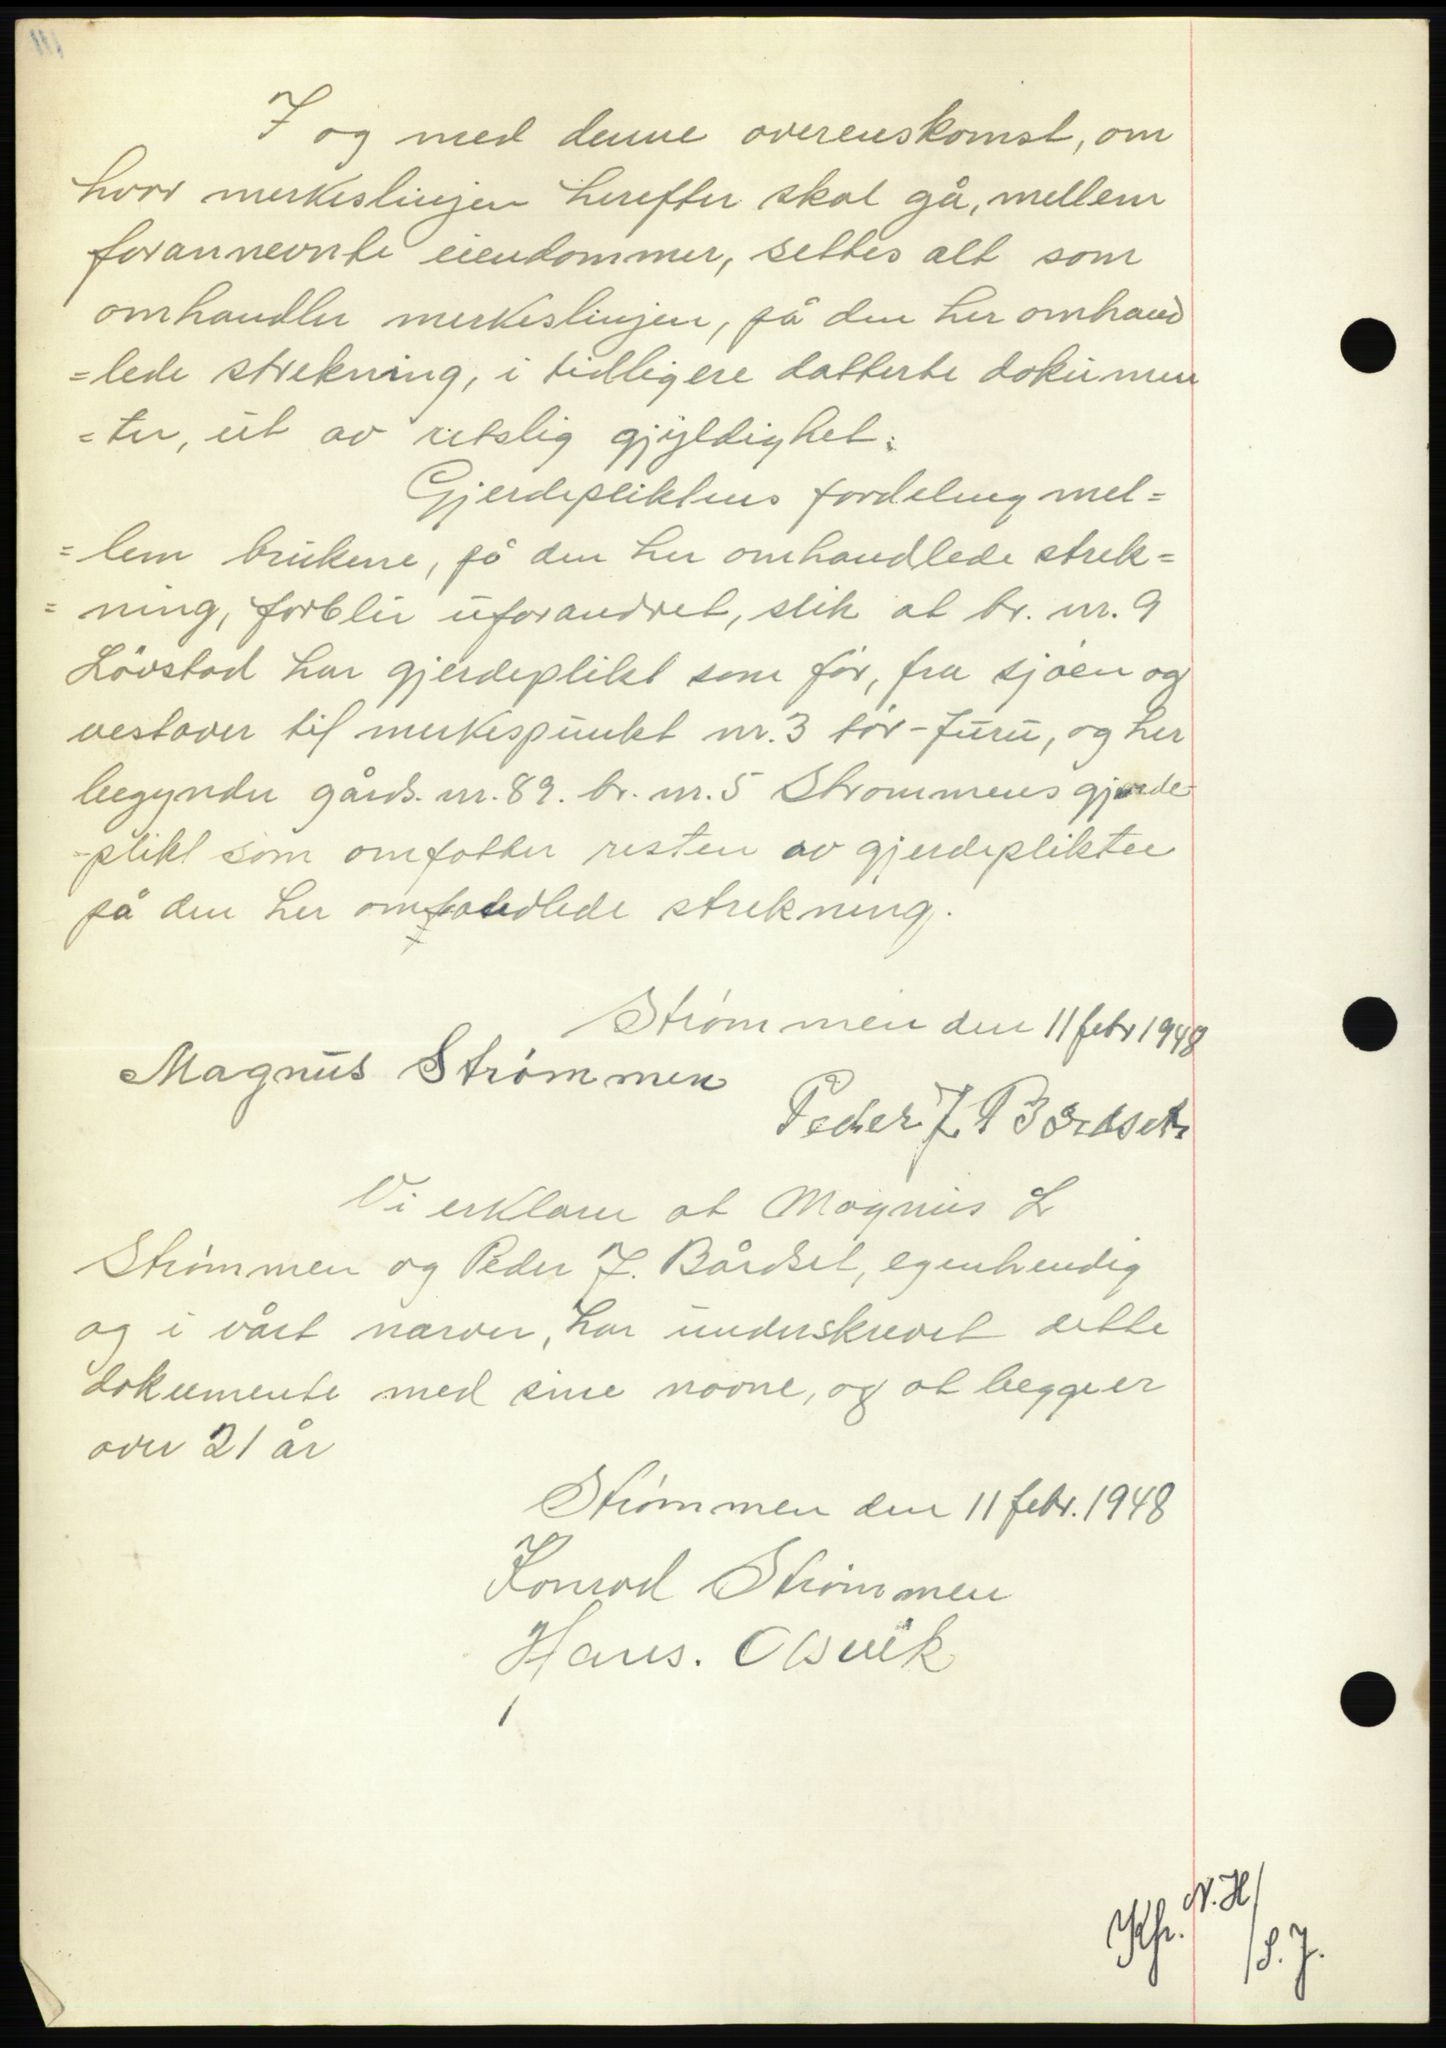 I og med denne overenskomst, om
hvor merkeslinjen herefter skal gå, mellem
forannevnte eiendommer, settes alt som
omhandler merkeslinjen, på den her omhand
=lede strekning, i tidligere datterte dokumen
=ter, ut av retslig gjyldighet.
Gjerdepliktens fordeling mel=
=lem brukene, på den her omhandlede strek=
=ning, forblir uforandret, slik at br. nr. 9
Lövstad har gjerdeplikt som før, fra sjøen og
vestover til merkespunkt nr. 3 tör-furu, og her
begynder gårds. nr. 89. br. nr. 5 Strommens gjerde-
-plikt som omfatter resten av gjerdeplikten
på den her omhandlede strekning.
Strømmen den 11 febr 1948
Magnus Strømmen
Peder J Bårdset
Vi erklarer at Magnus L
Strømmen og Peder J. Bårdset, egenhendig
og i vårt narver, har underskrevet dette
dokumente med sine navne, og at begge er
over 21 år
Strømmen den 11 febr. 1948
Konrad Strømmen
Hans. Olsvik
Kfr. N. H/
/S. J.